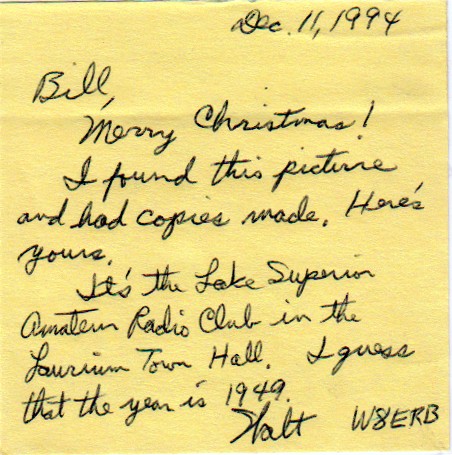 Dec. 11, 1994
Bill,
Merry Christmas!
I found this picture
and had copies made. Here's
yours.
It's the Lake Superior
Amateur Radio Club in the
Laurium Town Hall. I guess
that the year is 1949.
Walt W8ERB